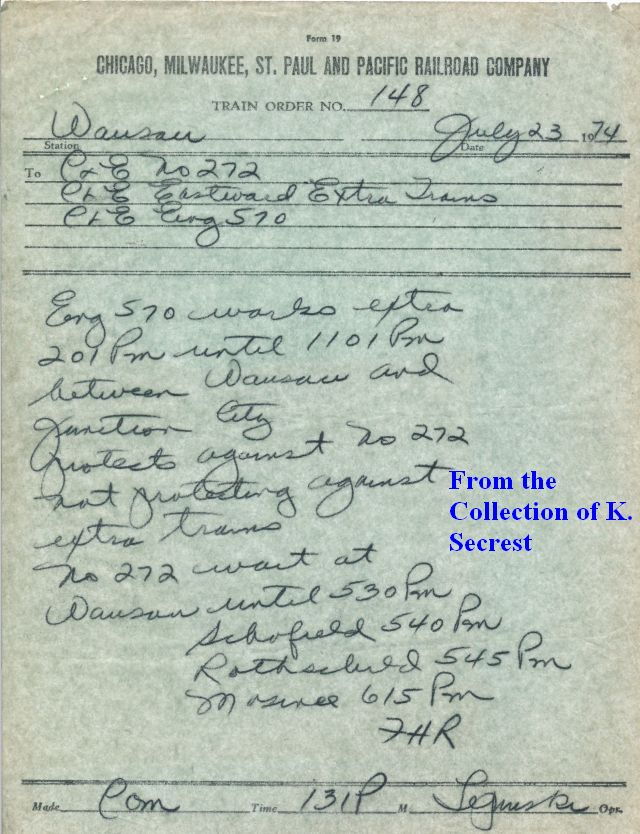 Form 19
CHICAGO, MILWAUKEE, ST. PAUL AND PACIFIC RAILROAD COMPANY
TRAIN ORDER NO. 148
Wausau July 23 1974
Station Date
To C&E No 272
C&E Eastward Extra Trains
C&E Eng 570
Eng 570 works extra
201 Pm until 1101 Pm
between Wausau and
Junction City
protects against No 272
not protecting against
extra trains
No 272 wait at
Wausau until 530 Pm
Schofield 540 Pm
Rothschild 545 Pm
Mosinee 615 Pm
FHR
From the
Collection of K.
Secrest
Made Com Time 131P M Opr.